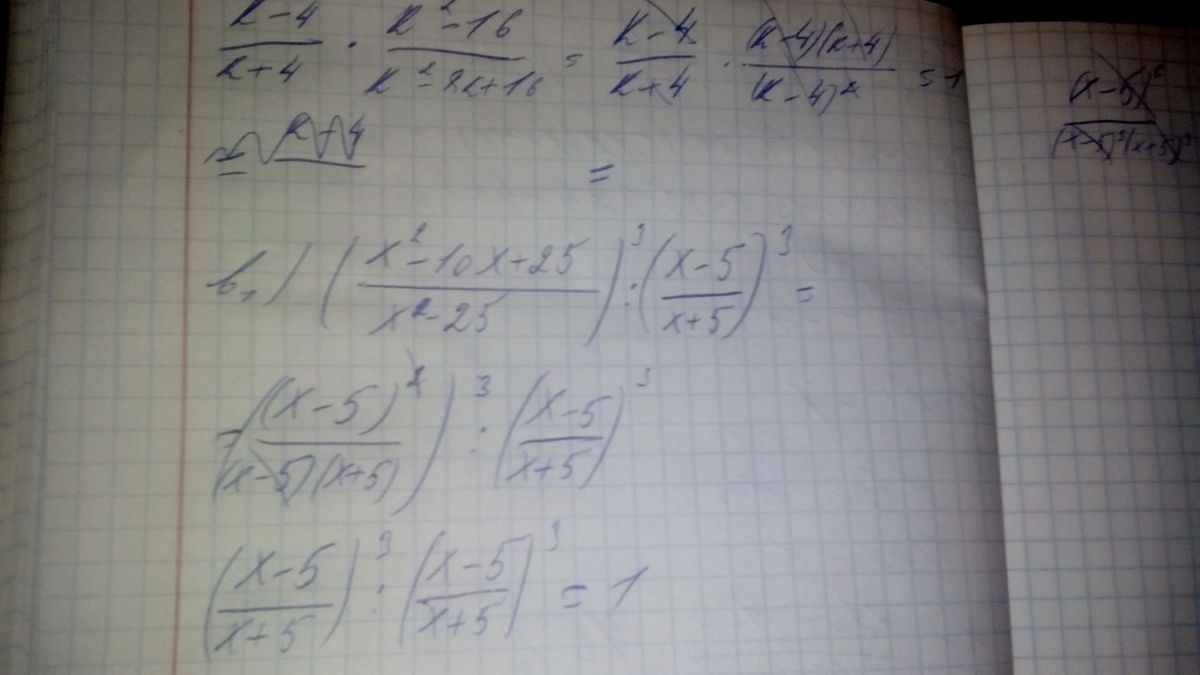 (k-4)/(k+4) · (k²-16)/(k²-8k+16) = (k-4)/(k+4) · ((k-4)(k+4))/((k-4)²) = 1
k+4
=
в,) ((x²-10x+25)/(x²-25))³ : ((x-5)/(x+5))³ =
= ((x-5)²/((x-5)(x+5)))³ : ((x-5)/(x+5))³
((x-5)/(x+5))³ : ((x-5)/(x+5))³ = 1